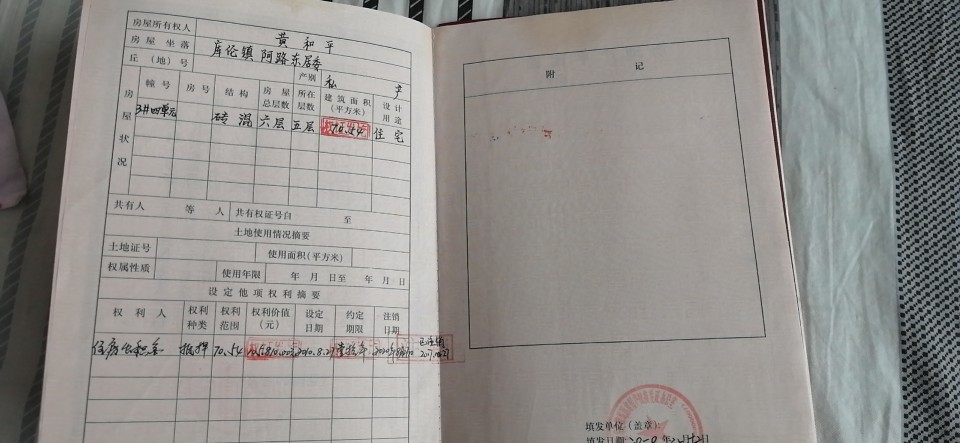 房屋所有权人 黄和平
房屋坐落 库伦镇阿路东居委
丘（地）号 产别 私产
房屋状况
幢号 房号 结构 房屋总层数 所在层数 建筑面积（平方米） 设计用途
3#四单元 砖混 六层 五层 70.54 住宅
共有人 等 人 共有权证号自 至
土地使用情况摘要
土地证号 使用面积(平方米)
权属性质 使用年限 年 月 日至 年 月 日
设定他项权利摘要
权利人 权利种类 权利范围 权利价值（元） 设定日期 约定期限 注销日期
住房公积金 抵押 70.54 2010.8.27 已注销
附 记
填发单位（盖章）
填发日期: